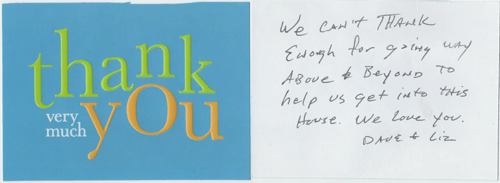 thank
very
much
you
We CAN'T THANK
Enough for going way
Above & Beyond To
help us get into this
House. We love you.
DAVE & Liz